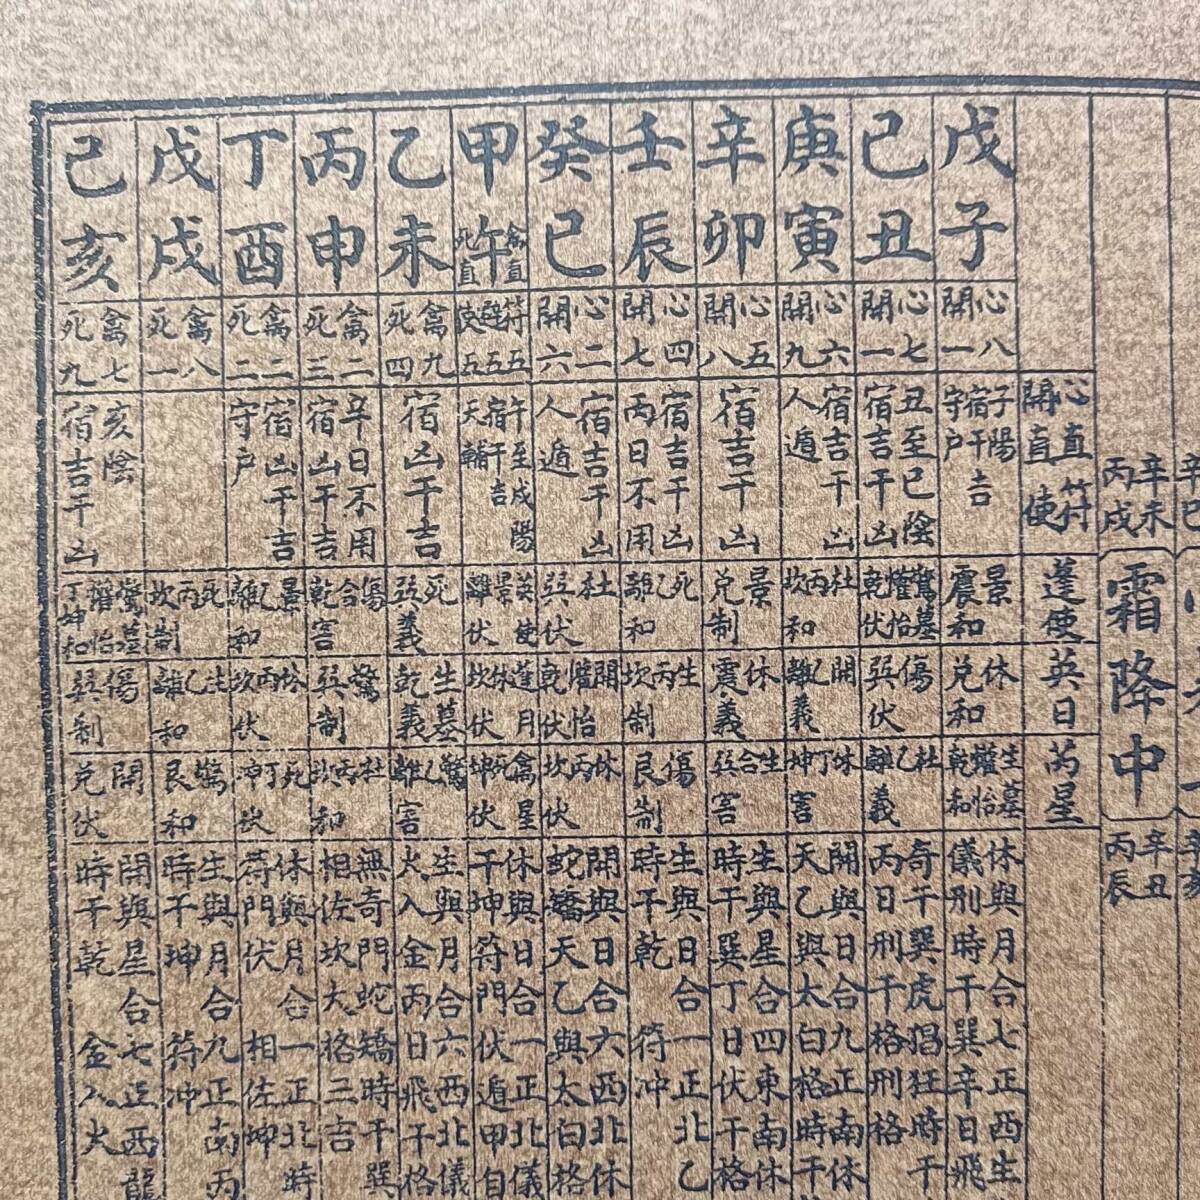 戊子
己丑
庚寅
辛卯
壬辰
癸巳
甲午
禽直
死直
乙未
丙申
丁酉
戊戌
己亥
心八
開一
心七
開一
心六
開九
心五
開八
心四
開七
心二
開六
符五
使五
禽九
死四
禽二
死三
禽二
死二
禽八
死一
禽七
死九
心直符
開直使
子陽
宿干吉
守户
丑至巳陰
宿吉干凶
宿吉干凶
人遁
宿吉干凶
宿吉干凶
丙日不用
宿吉干凶
人遁
午至戌陽
宿干吉
天輔
宿凶干吉
辛日不用
宿凶干吉
宿凶干吉
守户
亥陰
宿吉干凶
蓬使
景
震和
驚墓
權怡
乾伏
杜
丙
坎和
景
兌制
死
乙
離和
杜
巽伏
景英使
離伏
死
巽義
傷
合
乾害
景
乙
離和
死
丙
坎制
驚墓
權怡
丁坤和
英日
休
兌和
傷
巽伏
開
乙
離義
休
震義
生
丙
坎制
開
權怡
乾伏
休蓬月
坎伏
生墓
乾義
驚
巽制
休
丙
坎伏
生
乙
離和
傷
巽制
芮星
生墓
權怡
乾和
杜
乙
離義
休
丁
坤害
生
合
巽害
傷
艮制
休
丙
坎伏
死禽星
坤伏
驚
乙
離害
杜
丙
坎和
死
丁
坤伏
驚
艮和
開
兌伏
休與月合七正西生
儀刑時干巽辛日飛
奇干巽虎猖狂時干
丙日刑干格刑格
開與日合九正南休
天乙與太白格時干
生與星合四東南休
時干巽丁日伏干格
生與日合一正北乙
時干乾 符沖
開與日合六西北休
蛇矯天乙與太白格
休與日合一正北儀
干坤符門伏遁甲自
生與月合六西北儀
火入金丙日飛干格
無奇門蛇矯時干巽
相佐坎大格三吉
休與月合一正北時
符門伏 相佐坤
生與月合九正南丙
時干坤 符沖
開與星合七正西龍
時干乾 金入火
辛未
丙戌
霜降中
辛丑
丙辰
辛巳
辛亥